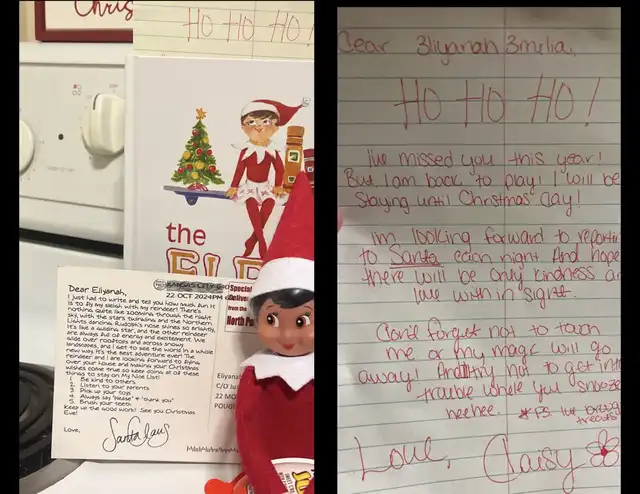 Chris
HO HO HO!
the
ELF
KANSAS CITY
22 OCT 2024 PM
Special
Deliver
from the
North Po
Dear Eliyanah,
I just had to write and tell you how much fun it
is to fly my sleigh with my reindeer! There's
nothing quite like zooming through the night
sky, with the stars twinkling and the Northern
Lights dancing. Rudolph's nose shines so brightly,
it's like a guiding star, and the other reindeer
are always full of energy and excitement. We
glide over rooftops and across snowy
landscapes, and I get to see the world in a whole
new way. It's the best adventure ever! The
reindeer and I are looking forward to flying
over your house and making your Christmas
wishes come true so keep doing all of these
things to stay on My Nice List!
1. Be kind to others
2. Listen to your parents
3. Pick up your toys
4. Always say "please" & "thank you"
5. Brush your teeth
Keep up the good work! See you Christmas
Eve!
Love,
Santa Claus
Eliyana
C/O Ju
22 MO
POUG
Dear Eliyanah Emelia,
HO HO HO!
ive missed you this year!
But I am back to play! I will be
staying until Christmas day!
im looking forward to reportin
to Santa each night And hope
there will be only kindness an
love within sight
Don't forget not to touch
me or my magic will go
away! And try not to get into
trouble while you snooze
heehee. *PS ive brough
treats!
Love, Daisy